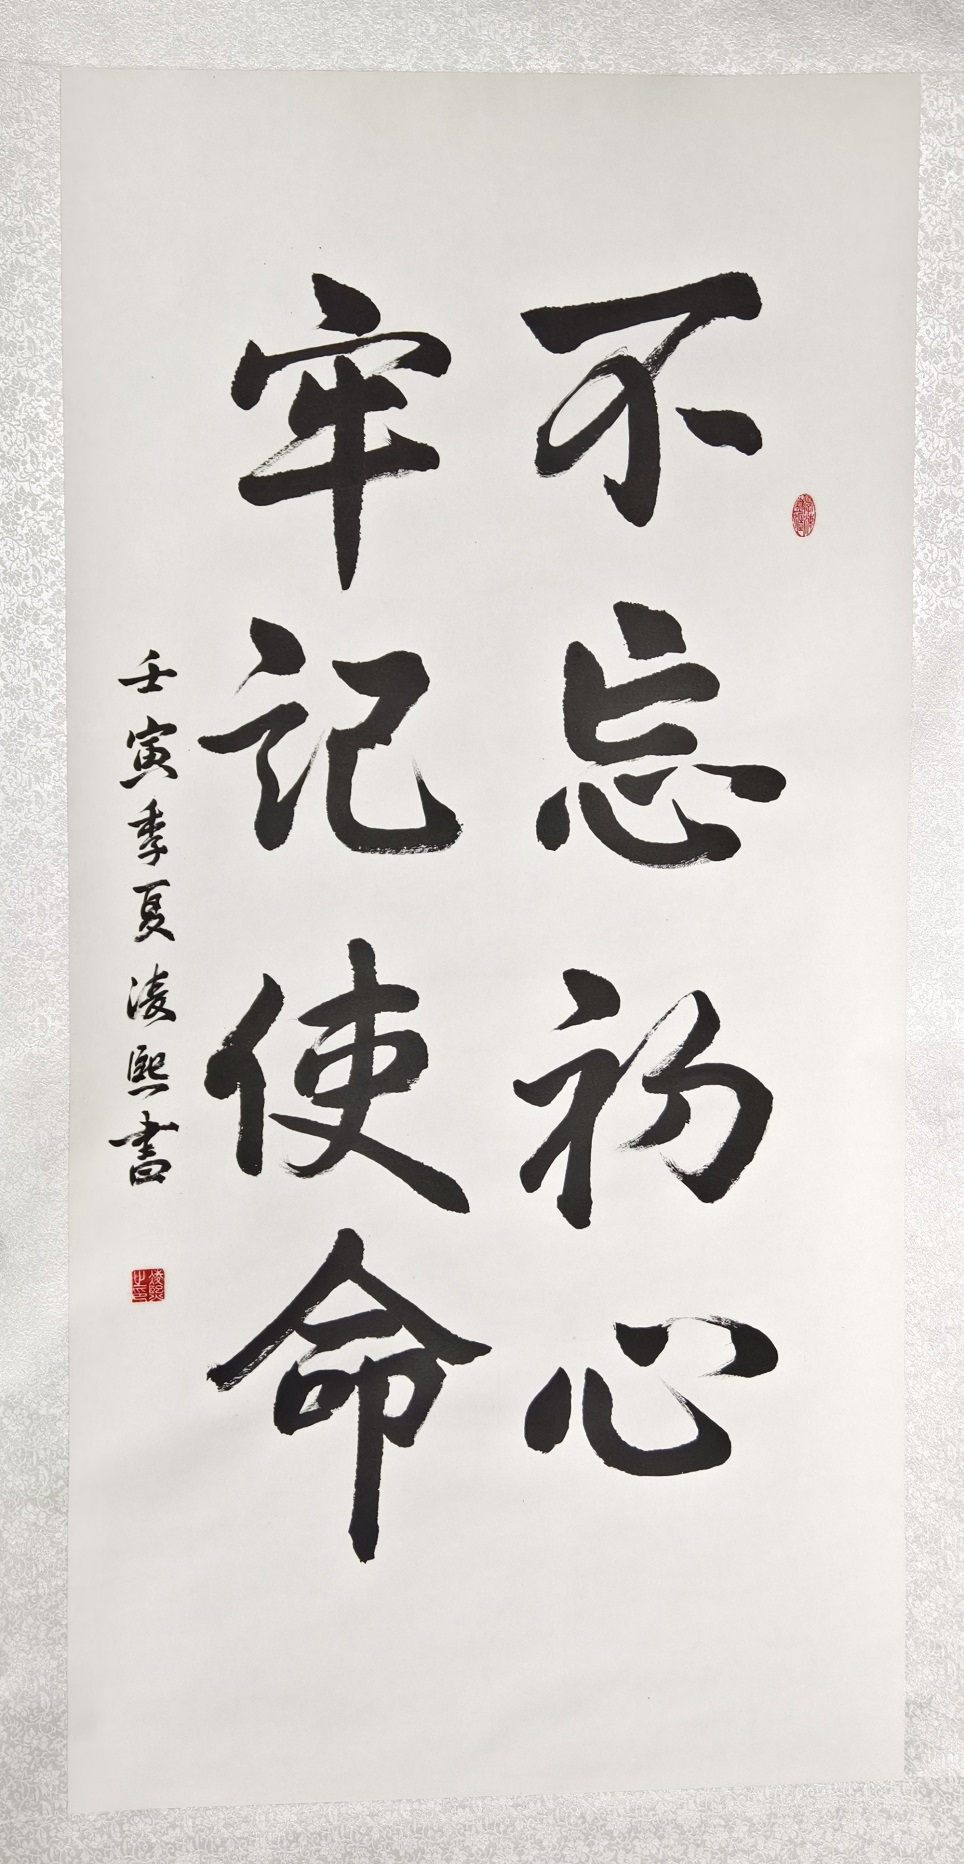 不忘初心
牢记使命
壬寅季夏凌熙書